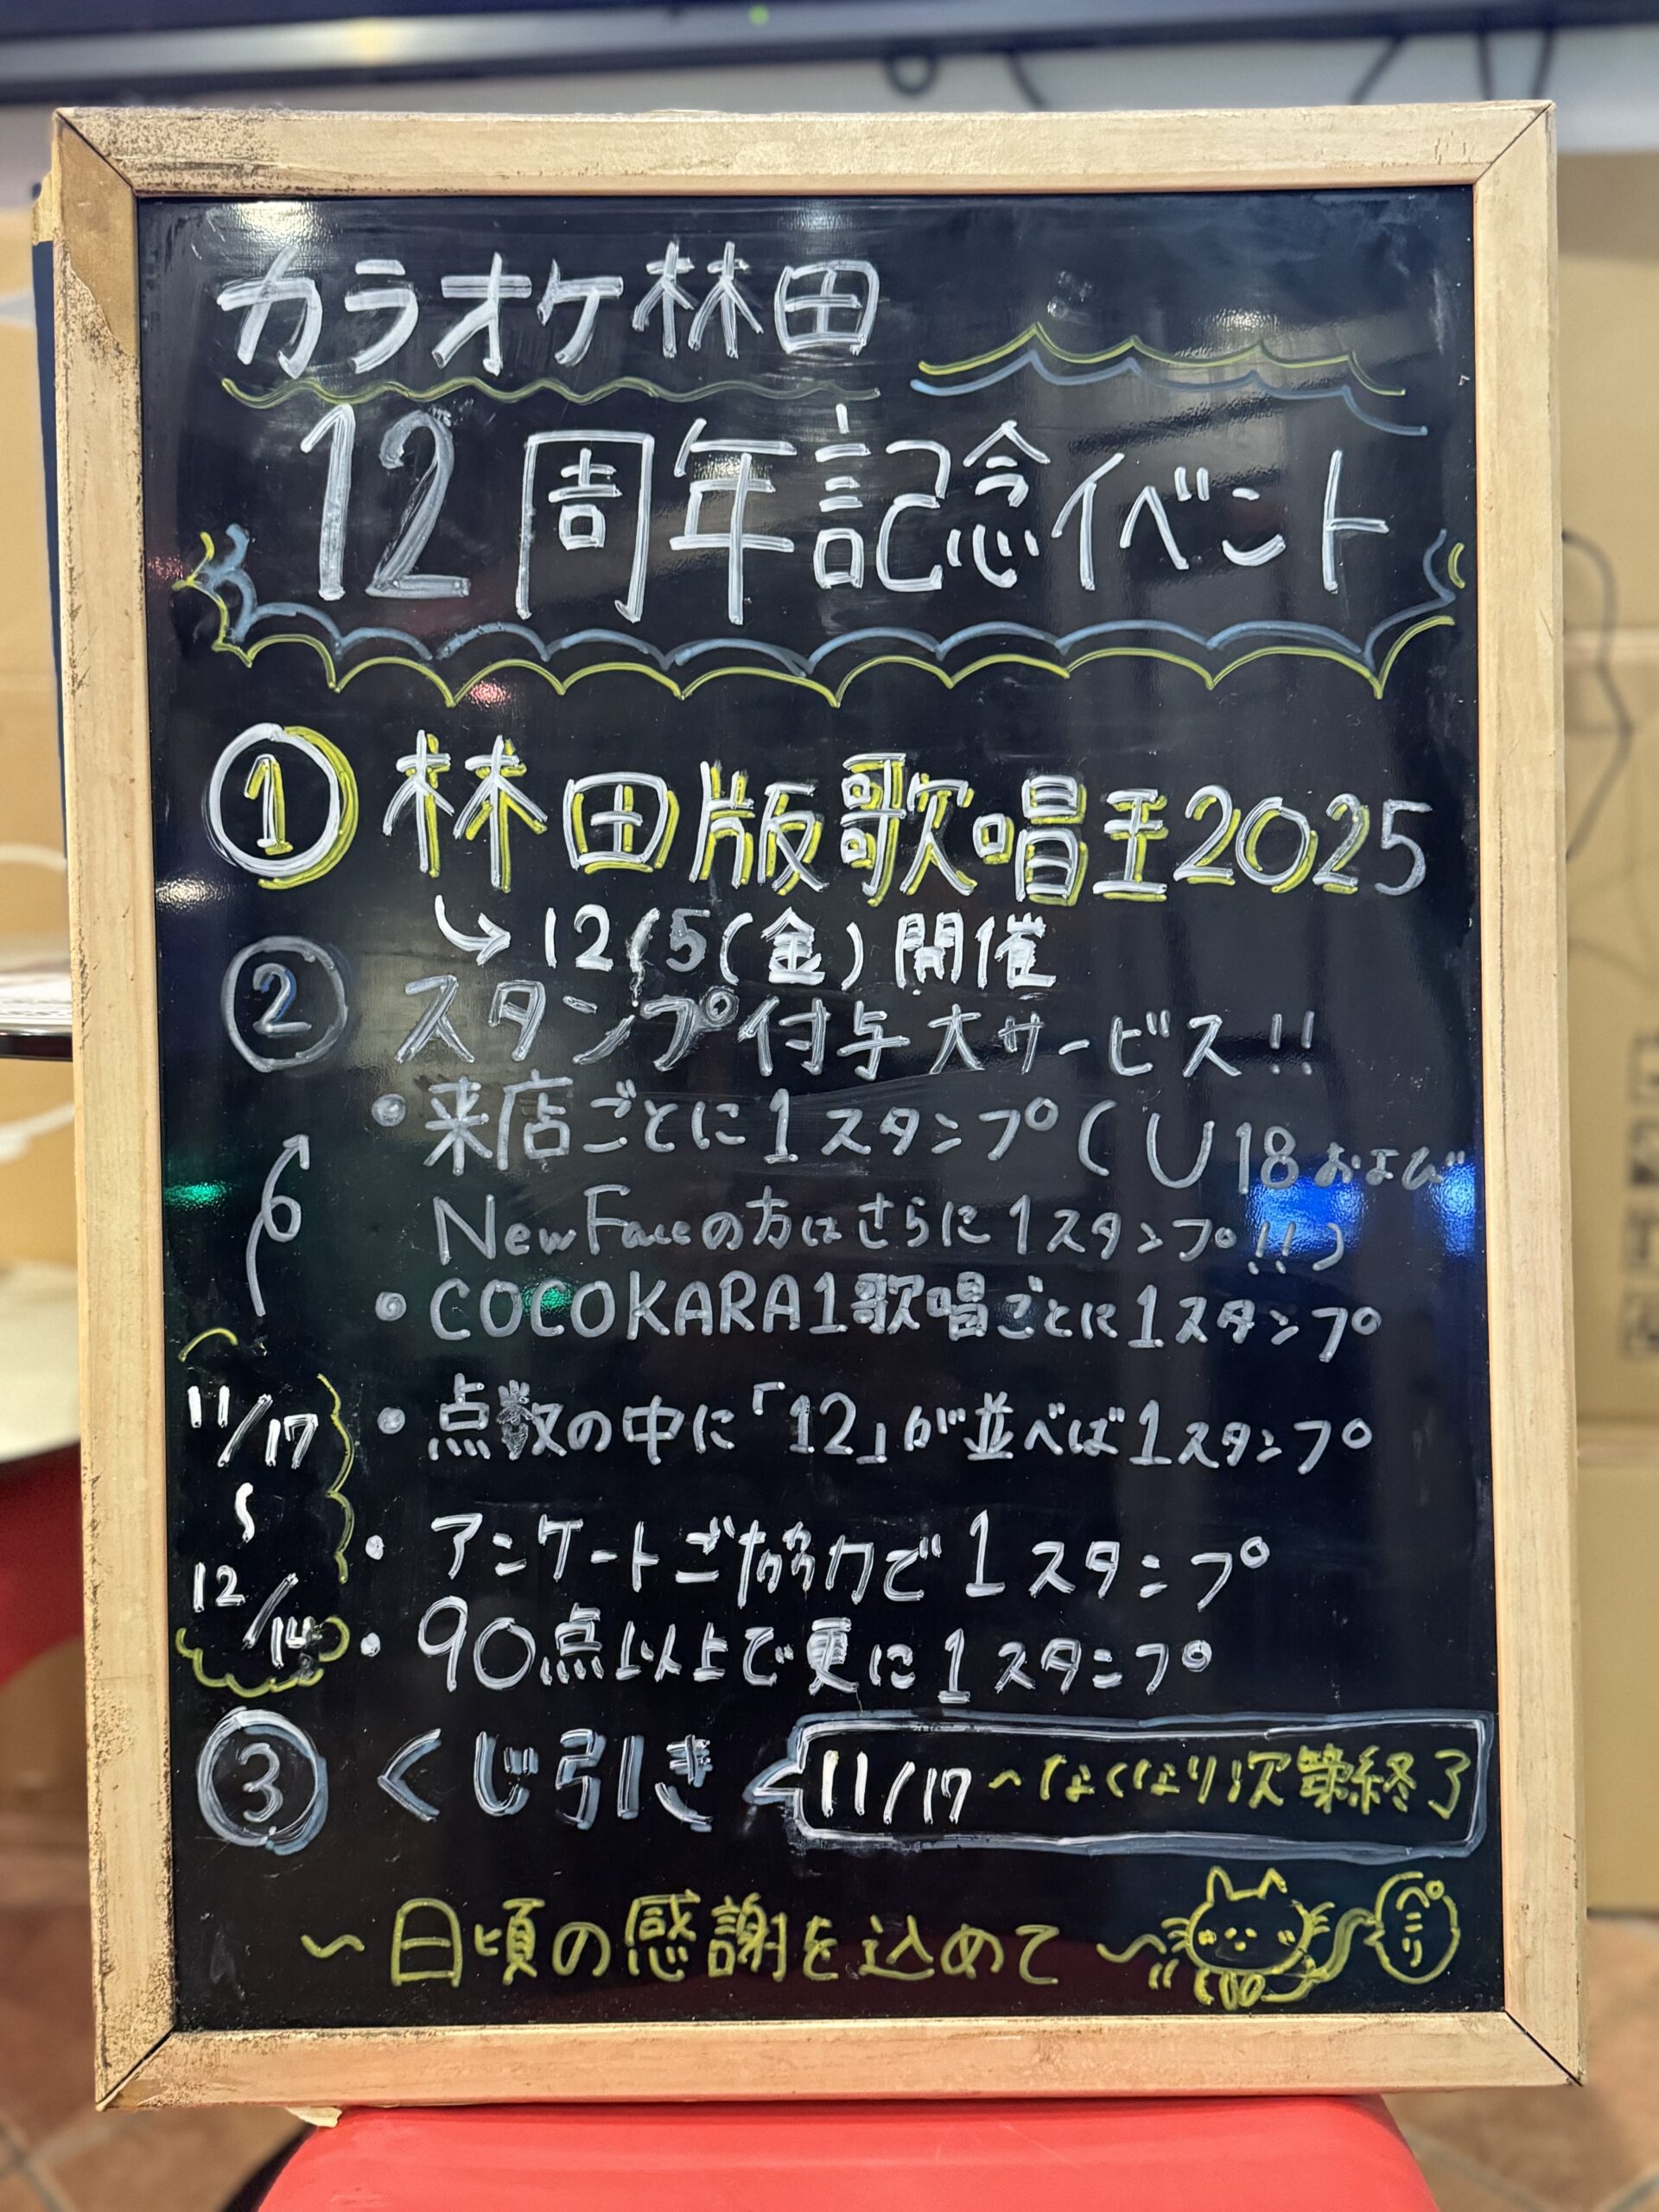 カラオケ林田
12周年記念イベント
① 林田版歌唱王2025
↳ 12/5(金)開催
② スタンプ付与大サービス!!
・来店ごとに1スタンプ(U18および
NewFaceの方はさらに1スタンプ!!)
・COCOKARA1歌唱ごとに1スタンプ
・点数の中に「12」が並べば1スタンプ
・アンケートご協力で1スタンプ
・90点以上で更に1スタンプ
11/17
〜
12/14
③ くじ引き
11/17〜なくなり次第終了
〜日頃の感謝を込めて〜
ペコリ